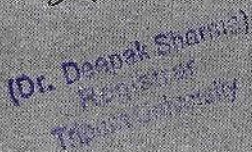 (Dr. Deepak Sharma)
Registrar
Tripura University